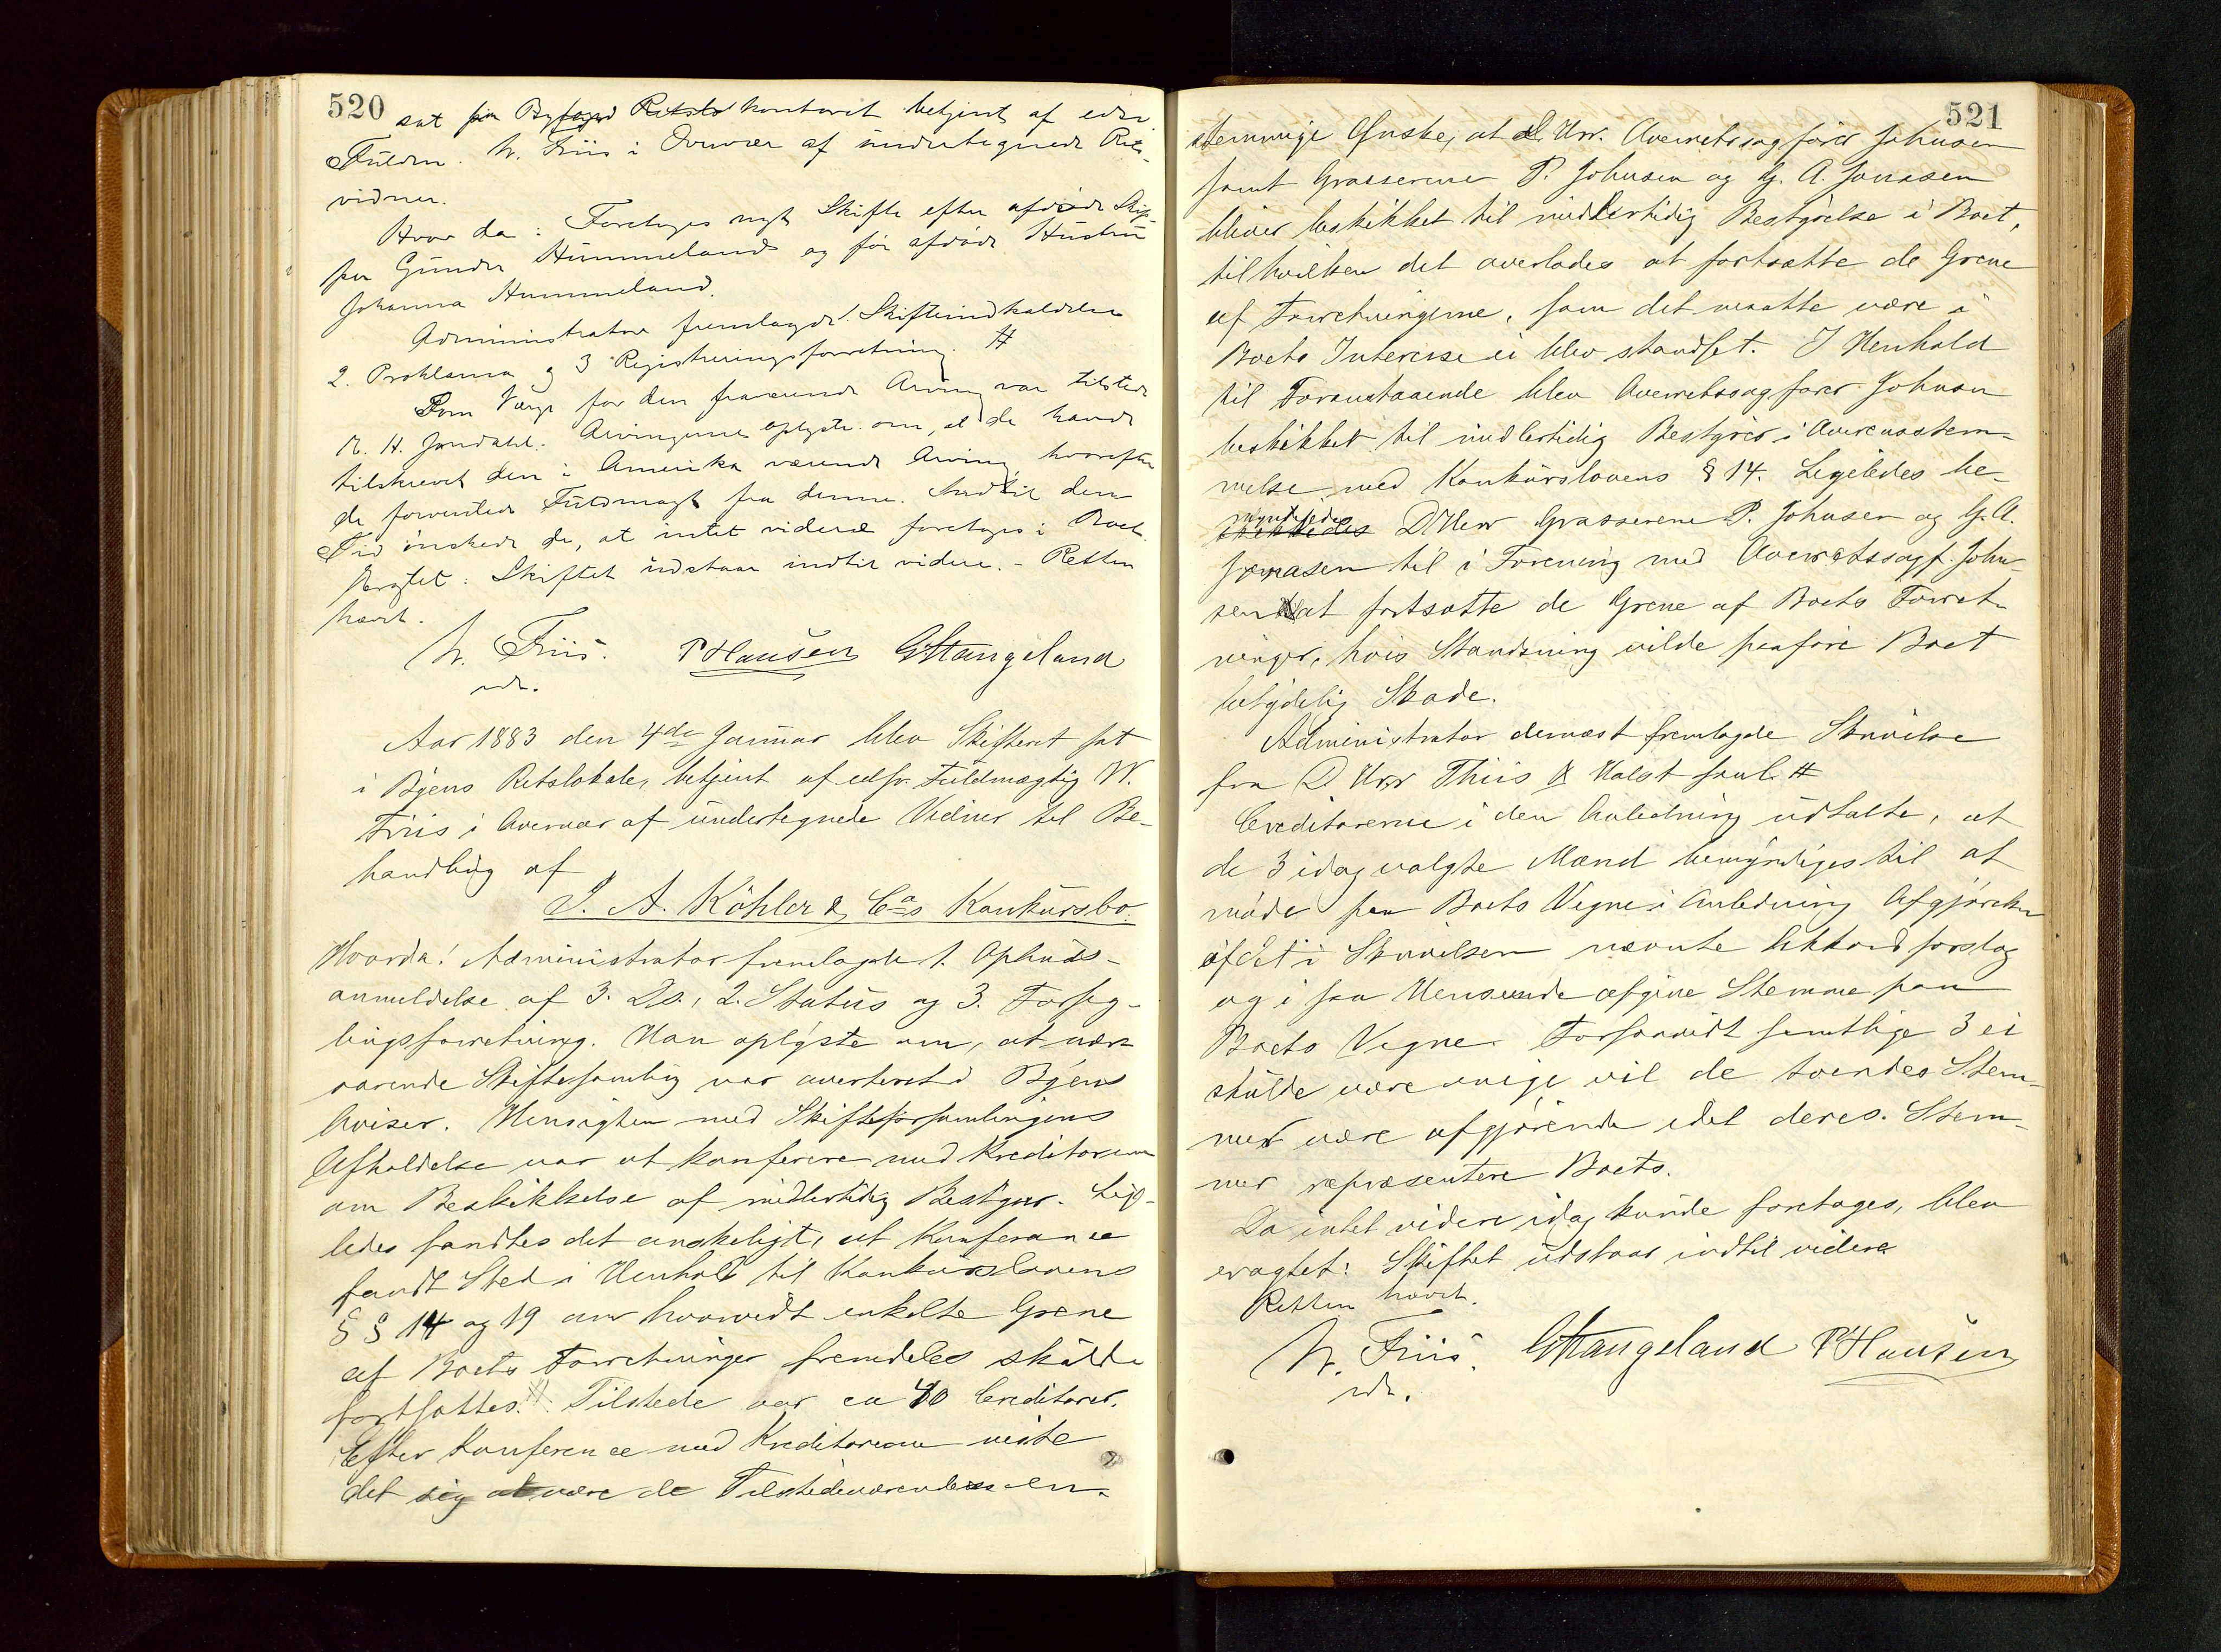 520
sat paa Byfoged Kontoret betjent af edsv
Fuldm. W. Friis i Overvær af undertegnede Rets-
vidner.
Hvor da: Foretoges nyt Skifte efter afdøde Skip-
per Gunder Hummeland og før afdøde Hustru
Johanna Hummeland.
Administrator fremlagde 1. Skifteindkaldelse
2. Proklama og 3 Registreringsforretning. #
Som Værge for den fraværende Arving var tilstede
H. Jondahl. Arvingerne oplyste om, at de havde
tilskrevet den i Amerika værende Arving, hvorefter
de forventede Fuldmagt fra denne. Indtil den
Tid ønskede de, at intet videre foretages i Boet.
Eragtet: Skiftet udstaar indtil videre. – Retten
hævet.
W. Friis. P Hansen G Stangeland
edsv.
Aar 1883 den 4de Januar blev Skifteret sat
i Byens Retslokale, betjent af edsv. Fuldmægtig W.
Friis i Overvær af undertegnede Vidner til Be-
handling af
J. A. Köhler & Cos Konkursbo.
Hvorda: Administrator fremlagde 1. Opbuds-
anmeldelse af 3. Ds., 2. Status og 3. Forseg-
lingsforretning. Han oplyste om, at nær-
værende Skiftesamling var averteret i Byens
Aviser. Hensigten med Skifteforsamlingens
Afholdelse var at konferere med Kreditorerne
om Beskikkelse af midlertidig Bestyrer. Lige-
ledes fandtes det ønskeligt, at Konferance
fandt Sted i Henhold til Konkurslovens
§ § 14 og 19 om hvorvidt enkelte Grene
af Boets Forretninger fremdeles skulde
fortsættes. Tilstede var ca 40 Creditorer.
Efter Konference med Kreditorerne viste
det sig at være de Tilstedeværendes en-
521
stemmige Ønske, at d. Hrr. Overretssagfører Johnsen
samt Grosserene P. Johnsen og G. A. Jonassen
bliver beskikket til midlertidig Bestyrelse i Boet,
tilhvilken det overlades at fortsætte de Grene
af Forretningerne, som det maatte være i
Boets Interesse ei blev standset. I Henhold
til Foranstaaende blev Overretssagfører Johnsen
beskikket til midlertidig Bestyrer i Overensstem-
melse med Konkurslovens § 14. Ligeledes be-
myndigedes DHerr Grosserene P. Johnsen og G. A.
Jonasen til i Forening med Overretssagf. John-
sen at fortsætte de Grene af Boets Forret-
ninger, hvis Standsning vilde paaføre Boet
betydelig Skade.
Administrator dernæst fremlagde Skrivelse
fra D. Hrr Thiis & Holst saal. #
Creditorerne i den Anledning udtalte, at
de 3 idag valgte Mænd bemyndiges til at
møde paa Boets Vegne i Anledning Afgjørelsen
af det i Skrivelsen nævnte Akkordforslag
og i saa Henseende afgive Stemme paa
Boets Vegne. Forsaavidt samtlige 3 ei
skulde være enige vil de toendes Stem-
mer være afgjørende idet deres Stem-
mer repræsentere Boets.
Da intet videre idag kunde foretages, blev
eragtet: Skiftet udstaar indtil videre
Retten hævet.
W. Friis. G Stangeland P Hansen
edsv.